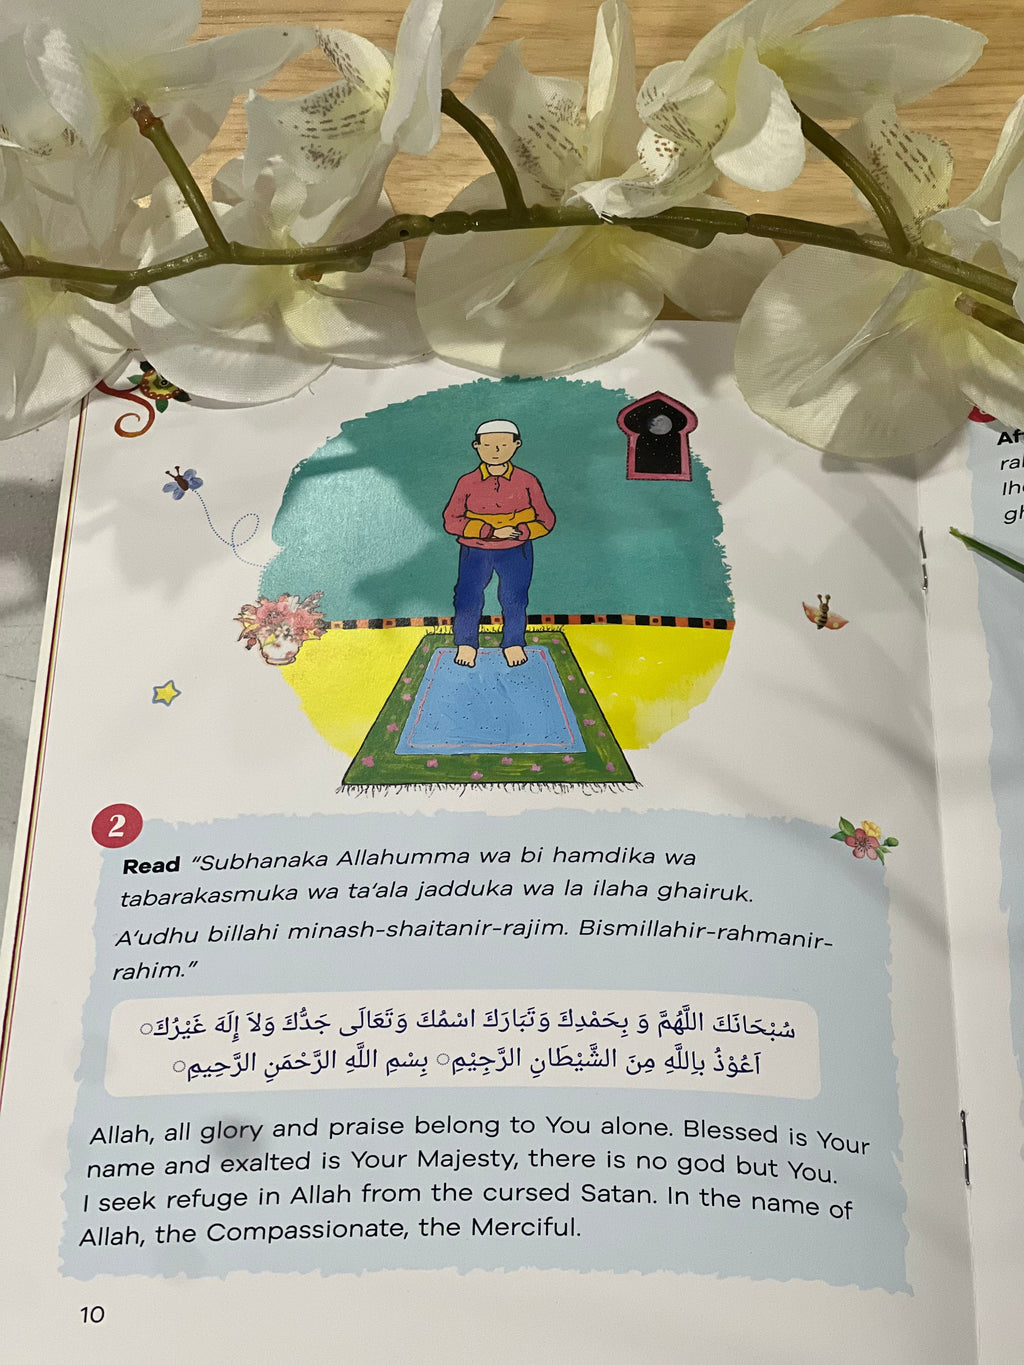 2
Read “Subhanaka Allahumma wa bi hamdika wa
tabarakasmuka wa ta‘ala jadduka wa la ilaha ghairuk.
A‘udhu billahi minash-shaitanir-rajim. Bismillahir-rahmanir-
rahim.”
سُبْحَانَكَ اللَّهُمَّ وَ بِحَمْدِكَ وَتَبَارَكَ اسْمُكَ وَتَعَالَى جَدُّكَ وَلاَ إِلَهَ غَيْرُكَ
اَعُوْذُ بِاللَّهِ مِنَ الشَّيْطَانِ الرَّجِيْمِ بِسْمِ اللَّهِ الرَّحْمَنِ الرَّحِيمِ
Allah, all glory and praise belong to You alone. Blessed is Your
name and exalted is Your Majesty, there is no god but You.
I seek refuge in Allah from the cursed Satan. In the name of
Allah, the Compassionate, the Merciful.
10